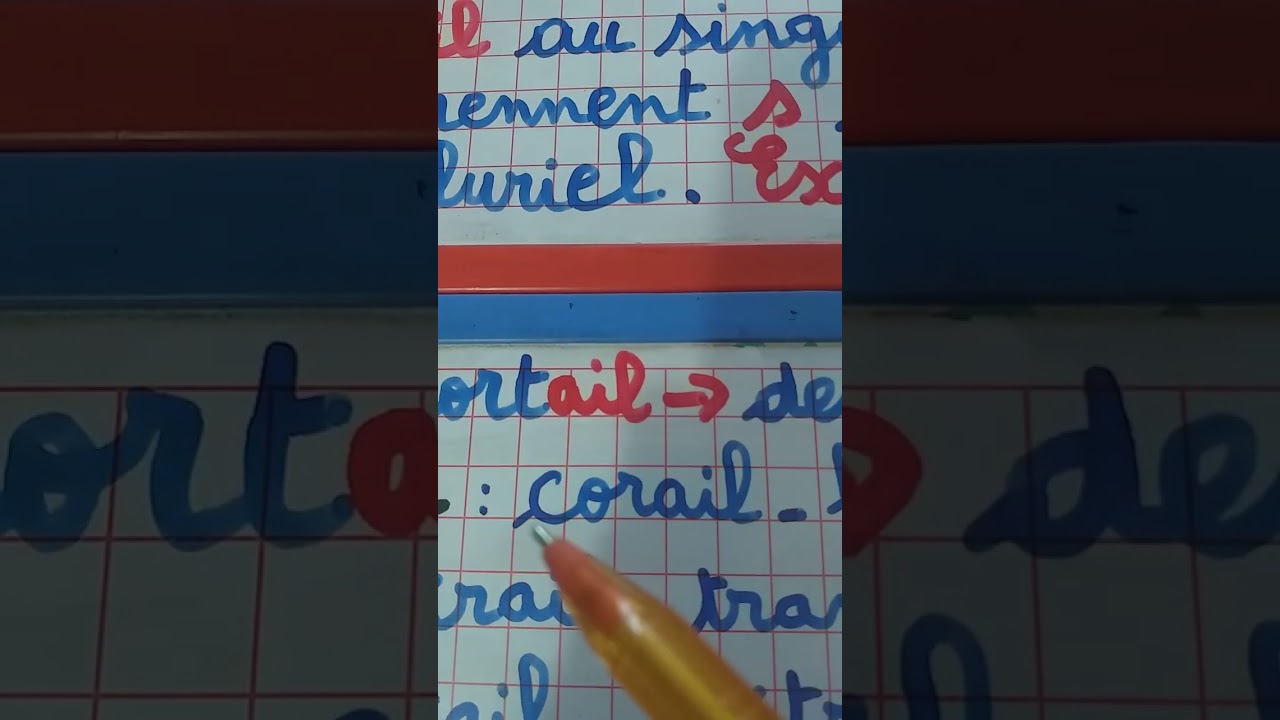 il au sing
ennent s
luriel. Ex
ortail → de
: corail -
rai tra
ail